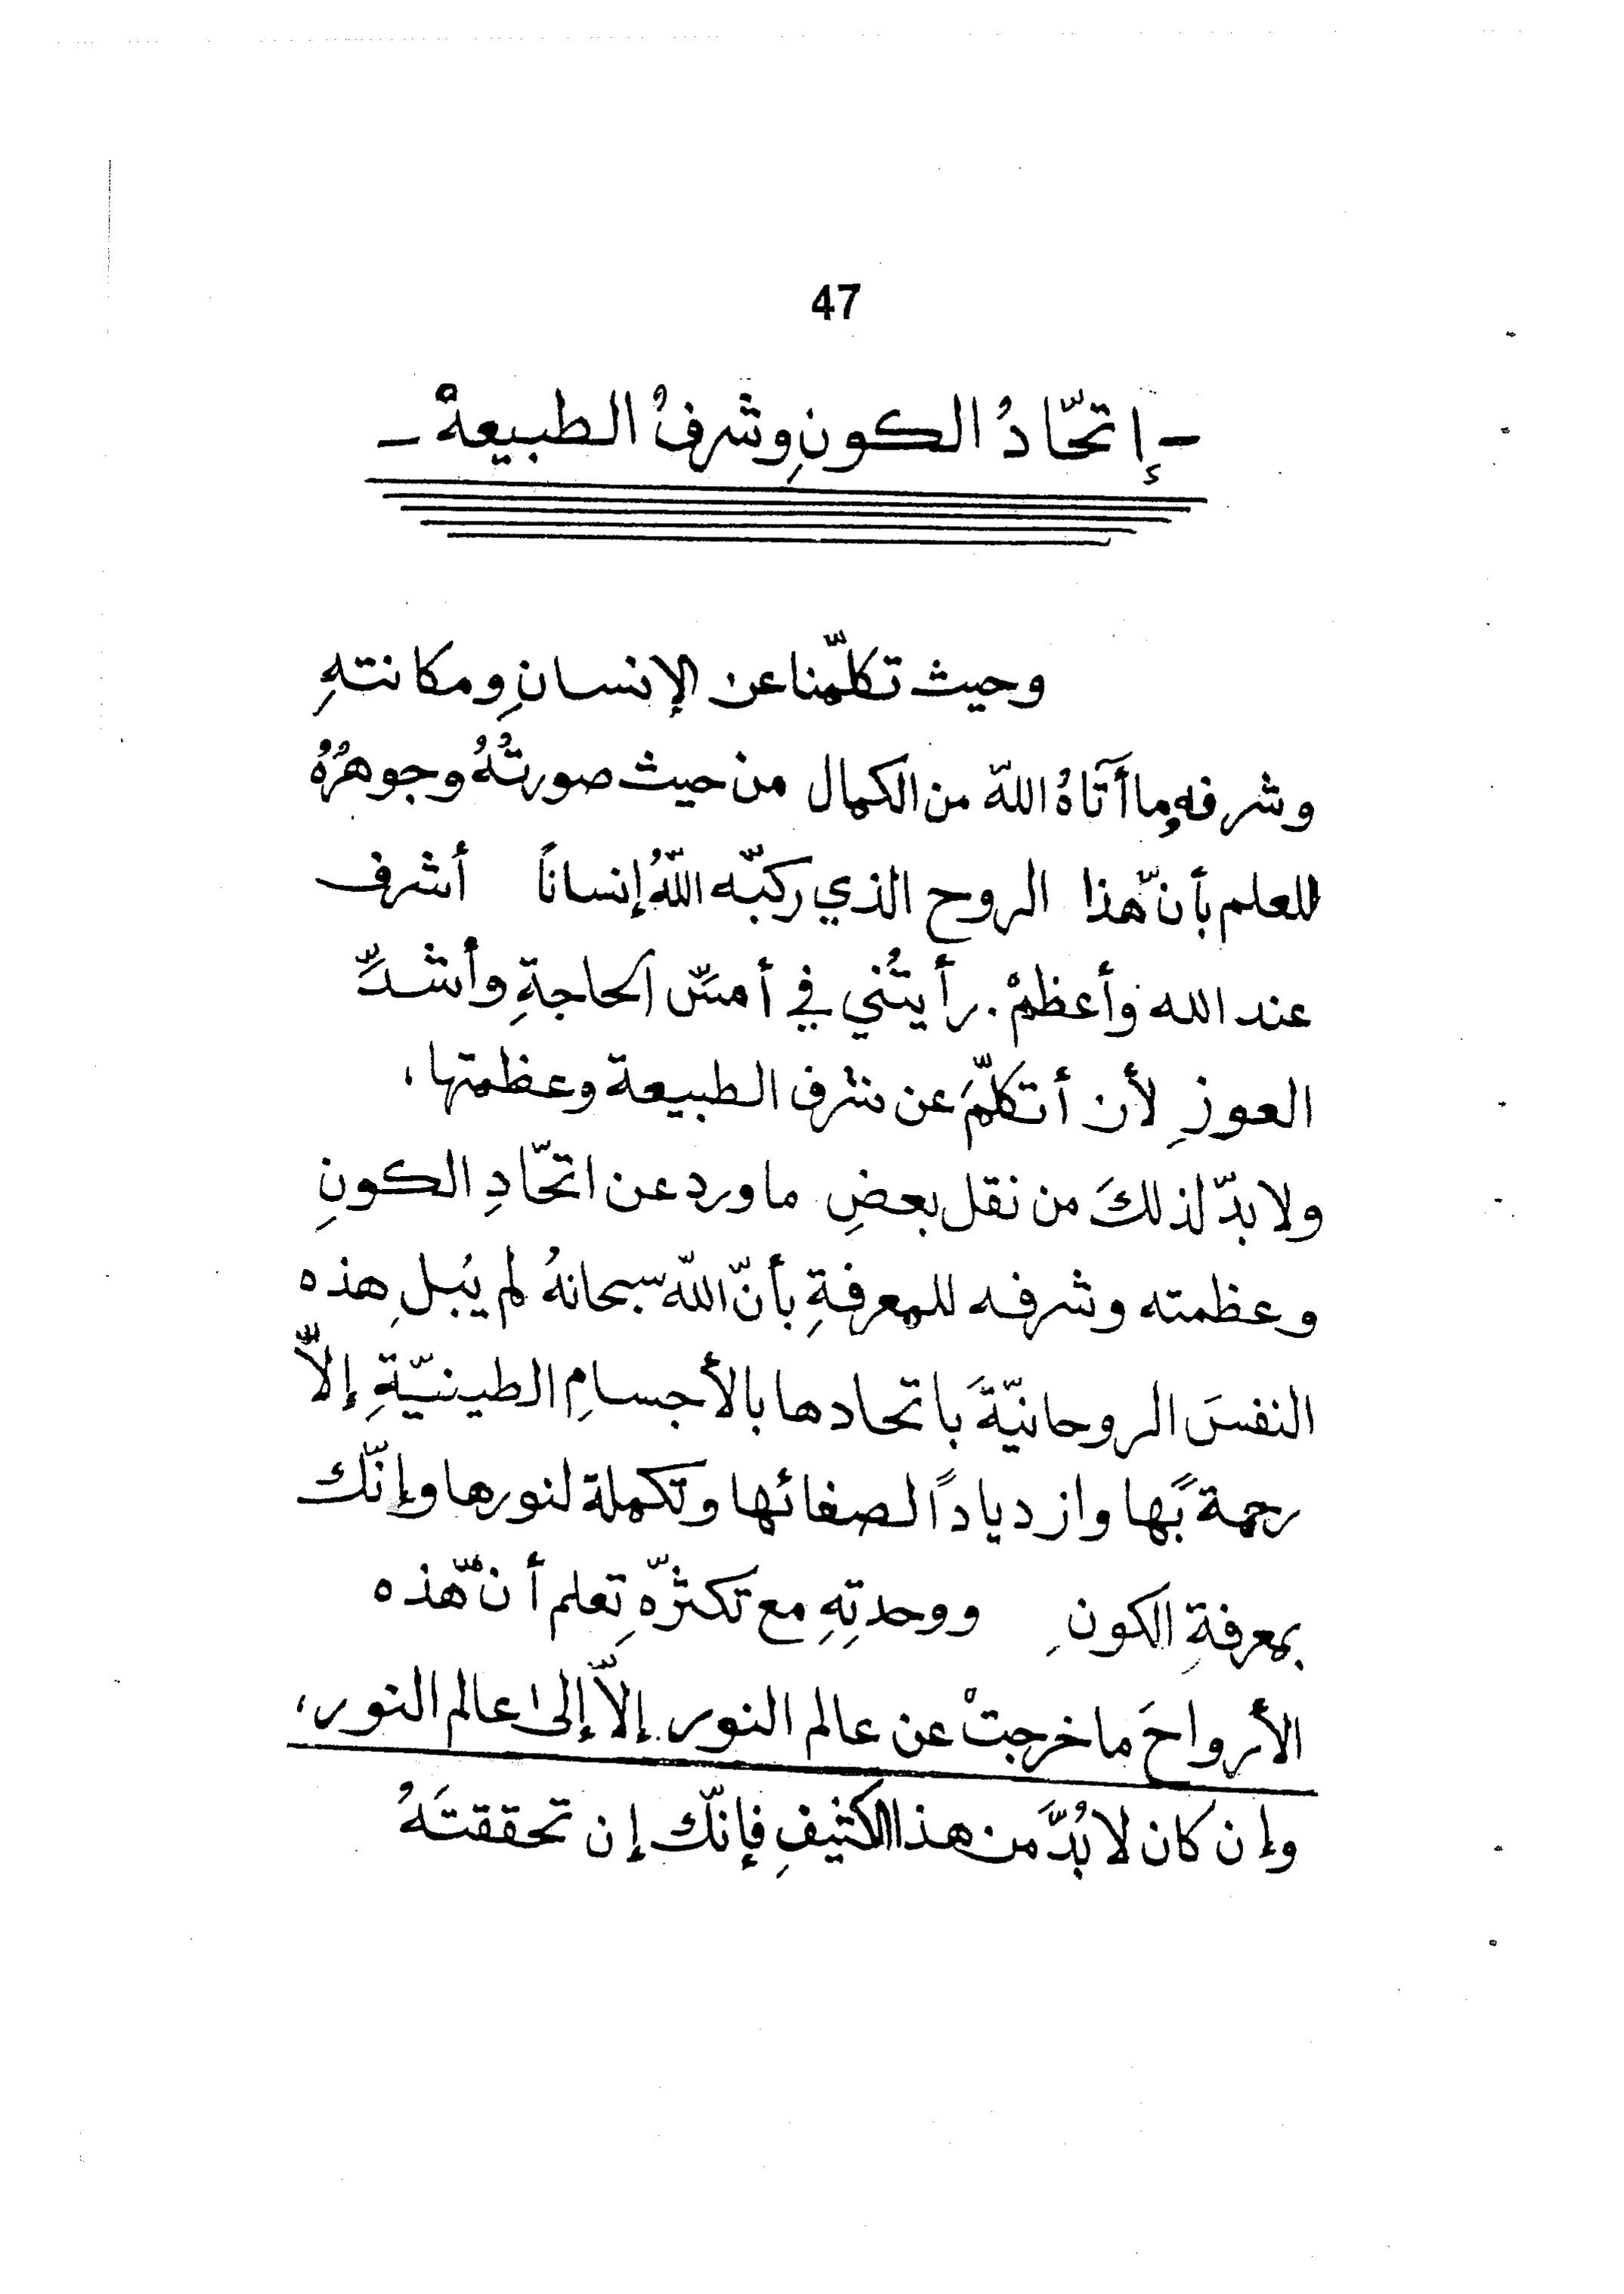 47
- إتّحادُ الكونِ وشرفُ الطبيعهْ -
وحيث تكلّمنا عن الإنسانِ ومكانتهِ
وشرفهِ وما أَتَاهُ اللّه من الكمال من حيث صورتُهُ وجوهرُهُ
للعلم بأنّ هذا الروح الذي ركبّه اللّهُ إنساناً أشرف
عند الله وأعظمْ. رأيتُني في أمسّ الحاجةِ وأشدِّ
العوزِ لأن أتكلّمَ عن شرف الطبيعة وعظمتها،
ولا بدّ لذلكَ من نقل بعضِ ما ورد عن اتحّادِ الكونِ
وعظمته وشرفه للمعرفةِ بأنّ اللّه سبحانهُ لم يُبلِ هذه
النفسَ الروحانيّةَ باتحادها بالأجسامِ الطينيّةِ إلاّ
رحمةً بها وازدياداً لصفائها وتكملة لنورها وإنّك
بمعرفةِ الكونِ ووحدتِهِ مع تكثرّهِ تعلم أنّ هذه
الأرواحَ ما خرجتْ عن عالم النور إلاّ إلى عالم النور،
وإن كان لا بُدَّ من هذا الكثيفِ فإنّك إن تحققتَهُ